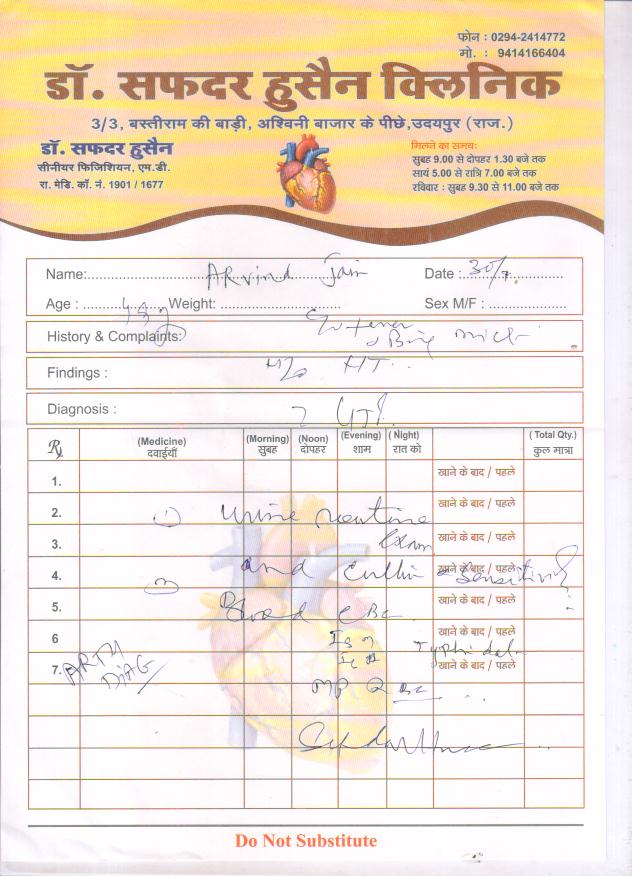 फोन : 0294-2414772
मो. : 9414166404
डॉ. सफदर हुसैन क्लिनिक
3/3, बस्तीराम की बाड़ी, अश्विनी बाजार के पीछे,उदयपुर (राज.)
डॉ. सफदर हुसैन
सीनीयर फिजिशियन, एम.डी.
रा. मेडि. कॉ. नं. 1901 / 1677
मिलने का समयः
सुबह 9.00 से दोपहर 1.30 बजे तक
सायं 5.00 से रात्रि 7.00 बजे तक
रविवार : सुबह 9.30 से 11.00 बजे तक
Name: ARvind Jain Date : 30/7.
Age : Weight: Sex M/F :
History & Complaints:
Findings : H/o HT
Diagnosis : ? UTI
Rx (Medicine) (Morning) (Noon) (Evening) (Night) (Total Qty.)
दवाईयाँ सुबह दोपहर शाम रात को कुल मात्रा
1. खाने के बाद / पहले
2. (1) urine routine खाने के बाद / पहले
3. Exam खाने के बाद / पहले
4. and Sensitivity खाने के बाद / पहले
(2)
5. Blood CBC खाने के बाद / पहले
6 IgM Typhidot खाने के बाद / पहले
7. IgG खाने के बाद / पहले
ARTH
DIAG
MP QBC
Do Not Substitute